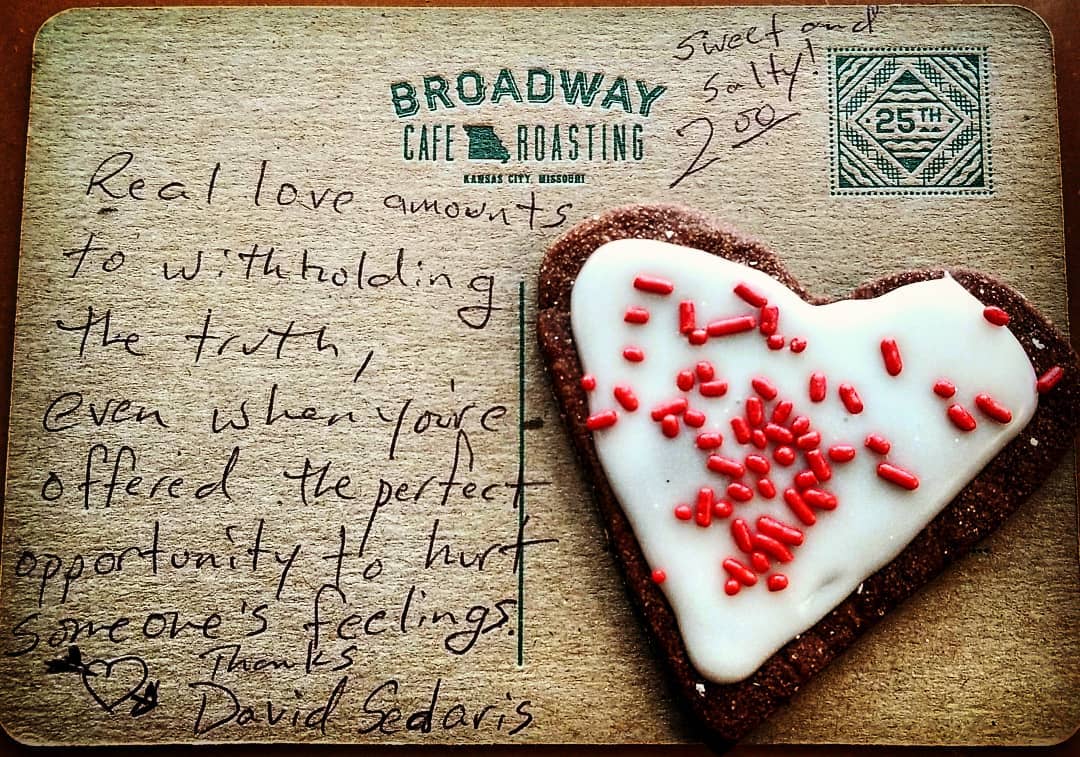 Sweet and
Salty!
2.00
BROADWAY
CAFE ROASTING
KANSAS CITY, MISSOURI
25TH
Real love amounts
to withholding
the truth,
even when you're
offered the perfect
opportunity to hurt
someone's feelings.
Thanks
David Sedaris